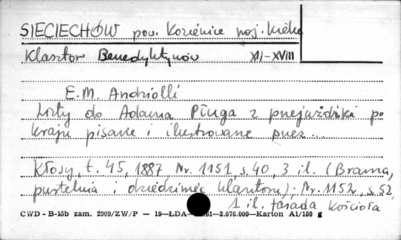 SIECIECHÓW pow. Kozienice woj. Kielce
Klasztor Benedyktynów XII-XVIII
E.M. Andriolli
Listy do Adama Pługa z przejażdżki po
kraju pisane i ilustrowane przez...
Kłosy, t. 45, 1887 Nr. 1151, s. 40, 3 il. (Brama,
pustelnia i dziedziniec klasztoru); Nr. 1152, s. 52,
1 il. fasada kościoła
CWD - B-15b zam. 2989/ZW/P — 19—ŁDA— 61—2.070.000—Karton A1/180 g